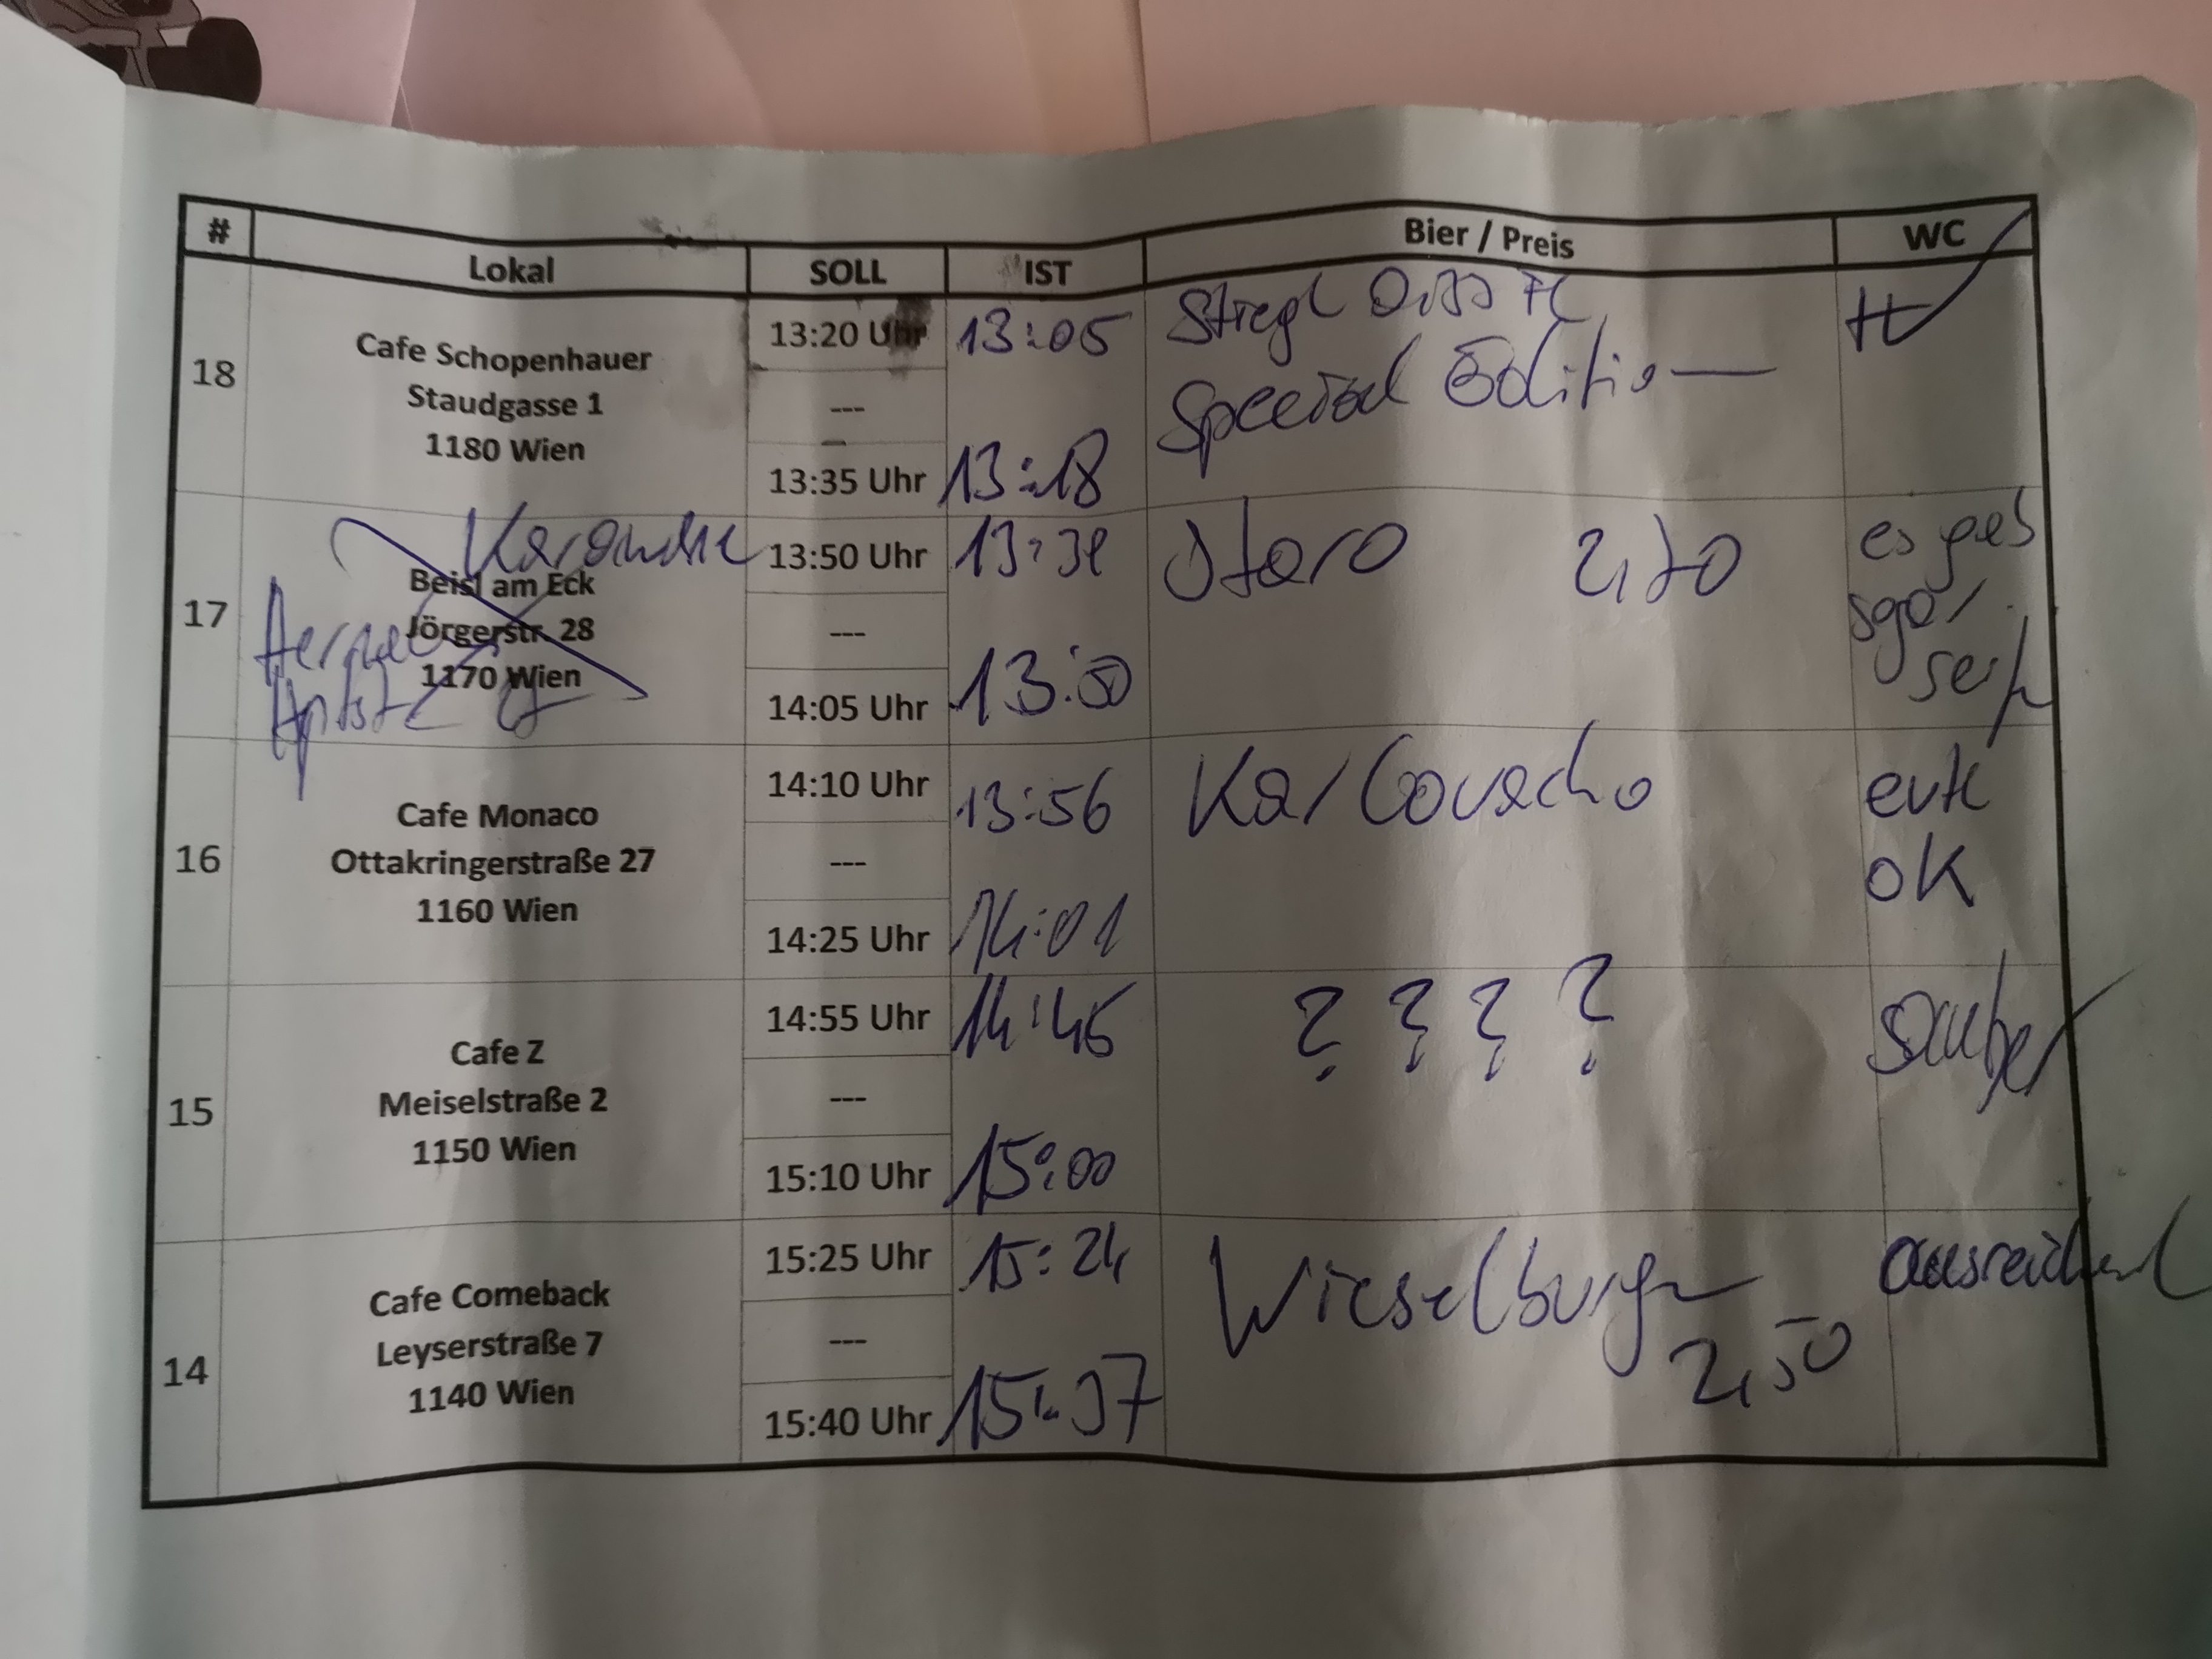 #
Lokal
SOLL
IST
Bier / Preis
WC
18
Cafe Schopenhauer
Staudgasse 1
1180 Wien
13:20 Uhr
---
13:35 Uhr
13:05
13:18
Stiegl 0,33 Fl
Special Edition
17
Beisl am Eck
Jörgerstr. 28
1170 Wien
13:50 Uhr
---
14:05 Uhr
13:50
Staro 2,70
es gab
sogar
Seife
16
Cafe Monaco
Ottakringerstraße 27
1160 Wien
14:10 Uhr
---
14:25 Uhr
13:56
14:01
Karlovacko
OK
15
Cafe Z
Meiselstraße 2
1150 Wien
14:55 Uhr
---
15:10 Uhr
14:45
15:00
? ? ? ?
sauber
14
Cafe Comeback
Leyserstraße 7
1140 Wien
15:25 Uhr
---
15:40 Uhr
15:24
15:37
Wieselburger
2,50
ausreichend